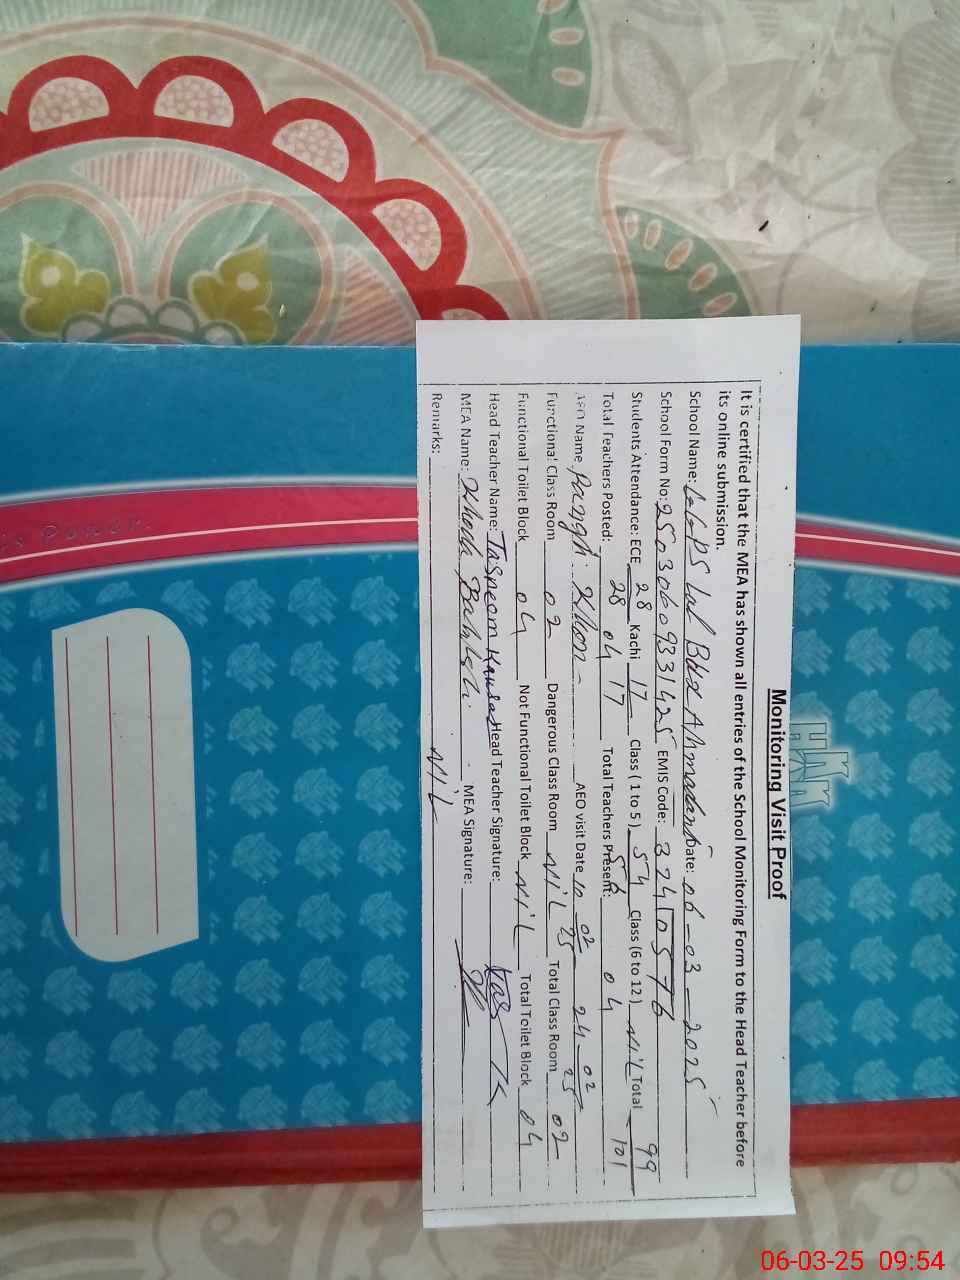 Monitoring Visit Proof
It is certified that the MEA has shown all entries of the School Monitoring Form to the Head Teacher before
its online submission.
School Name: Date: 06-03-2025
School Form No: 25030609331425 EMIS Code: 32410576
Students Attendance: ECE 28/28 Kachi 17/17 Class (1 to 5) 54/56 Class (6 to 12) Nil Total 99/101
Total Teachers Posted: 04 Total Teachers Present: 04
AEO Name Khan AEO visit Date 10-02-25 24-02-25
Functional Class Room 02 Dangerous Class Room Nil Total Class Room 02
Functional Toilet Block 04 Not Functional Toilet Block Nil Total Toilet Block 04
Head Teacher Name: Tasneem Kausar Head Teacher Signature:
MEA Name: Khoda Bakhsh MEA Signature:
Remarks: Nil
is Power.
06-03-25 09:54